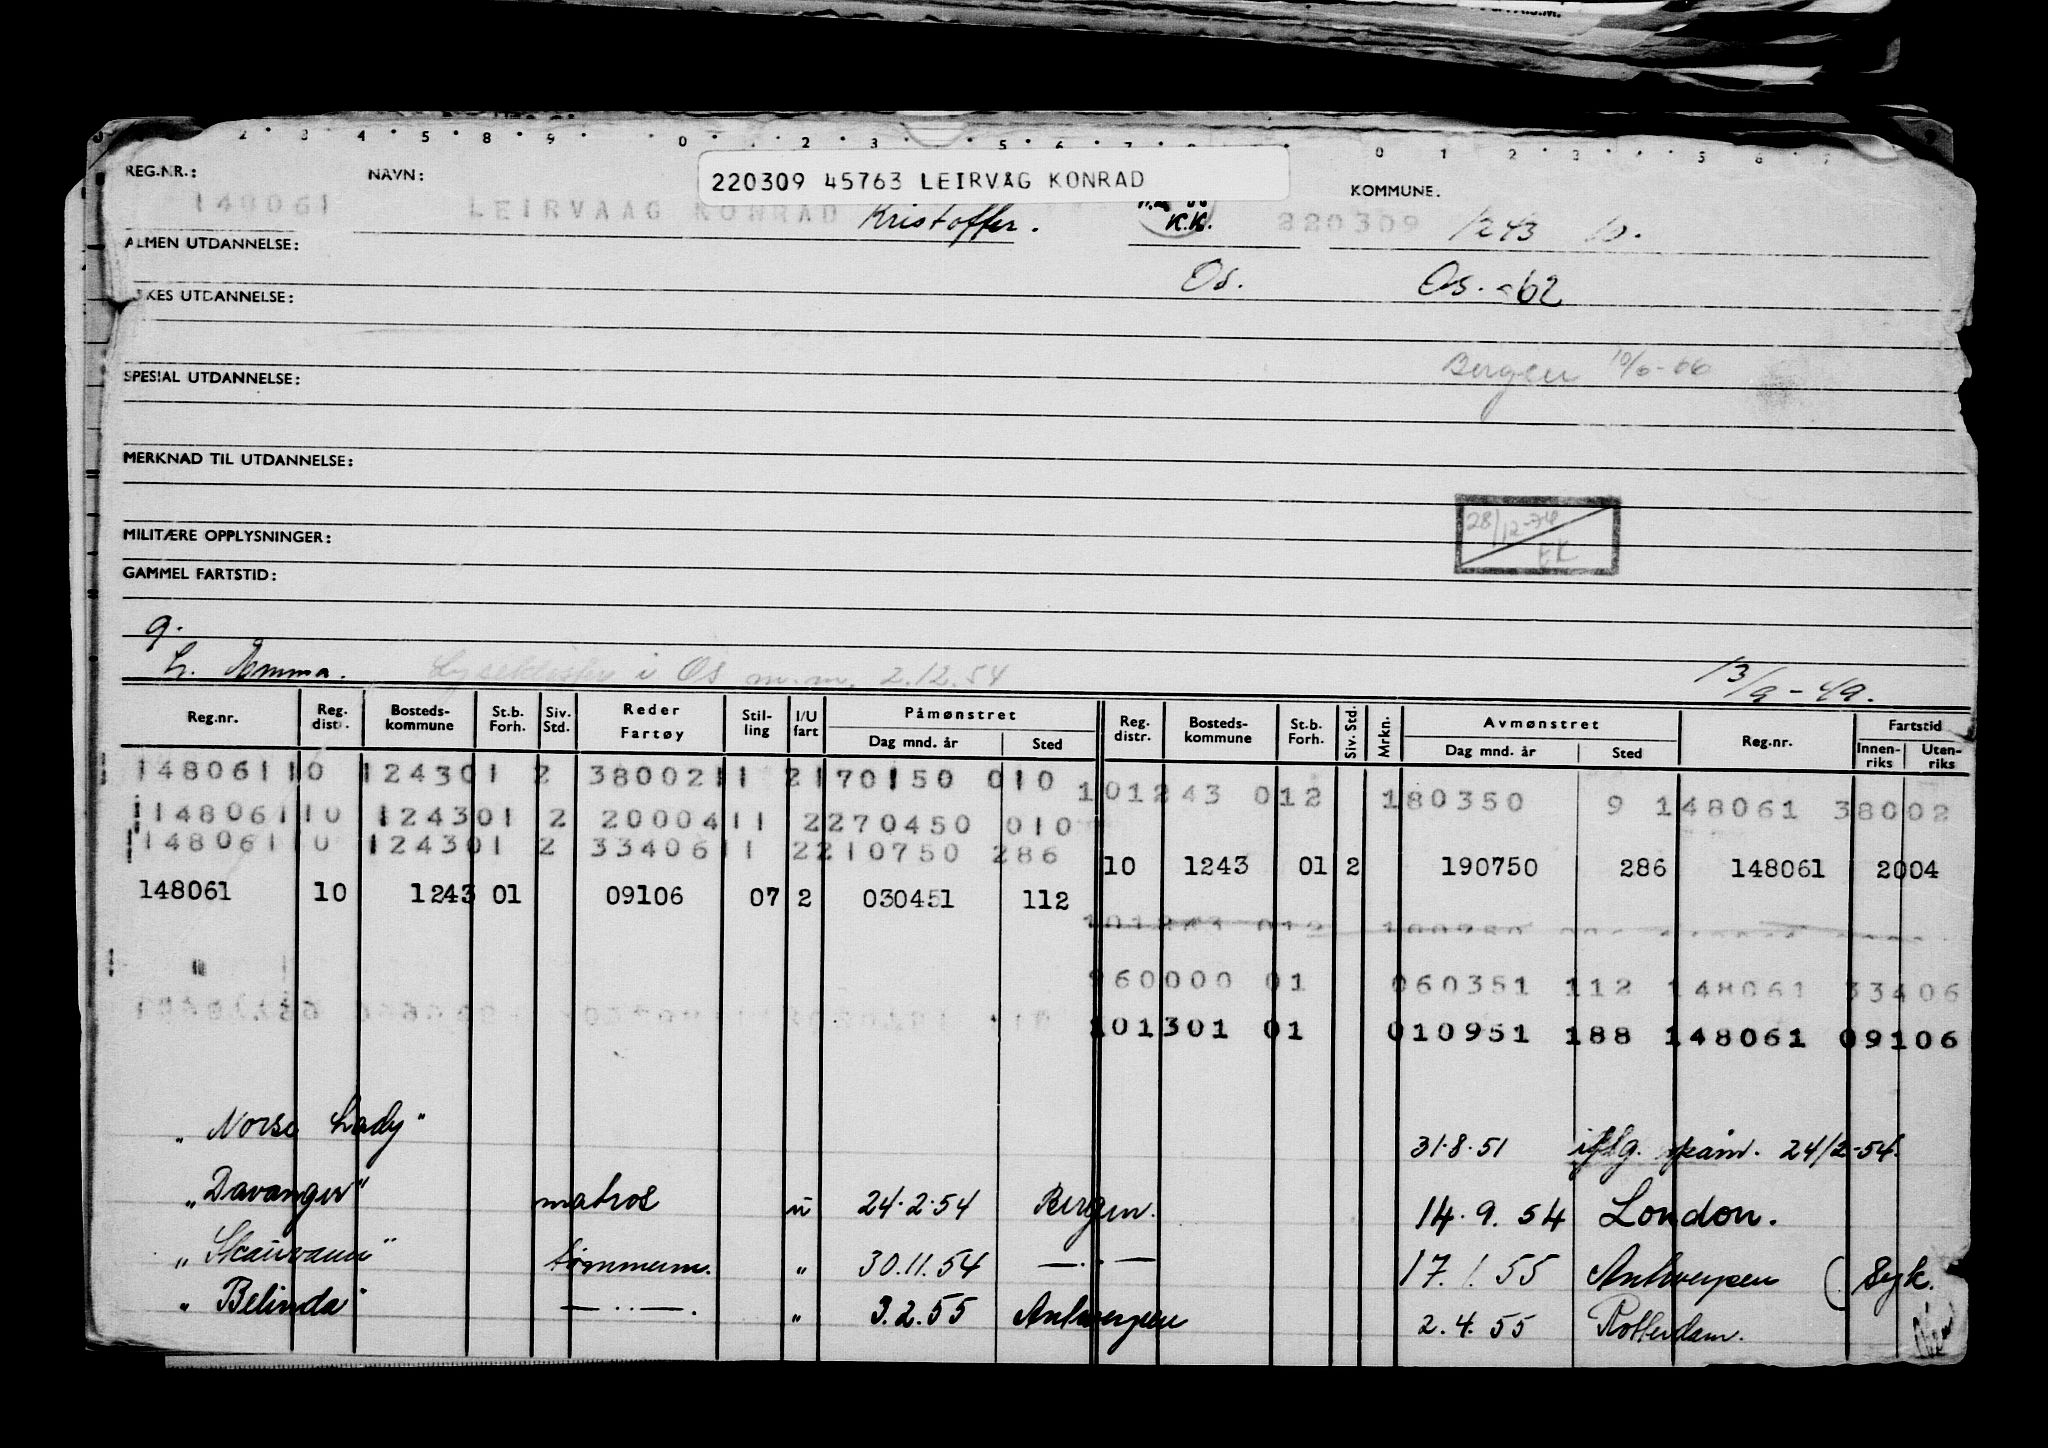 REG.NR.: NAVN: 220309 45763 LEIRVÅG KONRAD KOMMUNE.
148061 LEIRVAAG KONRAD Kristoffer. K.K. 220309 1243 10.
ALMEN UTDANNELSE:
Os. Os. -62
KES UTDANNELSE:
Bergen 10/6-66
SPESIAL UTDANNELSE:
MERKNAD TIL UTDANNELSE:
28/12-74
EK
MILITÆRE OPPLYSNINGER:
GAMMEL FARTSTID:
g.
L. i Os m.m. 2.12.54 13/9-49.
Reg.nr. Reg. distr. Bosteds-kommune St.b. Forh. Siv. Std. Reder Fartøy Stil-ling I/U fart Påmønstret Dag mnd. år Sted Reg. distr. Bosteds-kommune St.b. Forh. Siv. Std. Mrkn. Avmønstret Dag mnd. år Sted Reg.nr. Fartstid Innen-riks Uten-riks
148061 10 1243 01 2 38002 11 2 170150 010 10 1243 01 2 180350 9 148061 38002
148061 10 1243 01 2 20004 11 2 270450 010
148061 10 1243 01 2 33406 11 2 210750 286 10 1243 01 2 190750 286 148061 2004
148061 10 1243 01 09106 07 2 030451 112
960000 01 060351 112 148061 33406
101301 01 010951 188 148061 09106
"Norse Lady" 31.8.51 24/2-54.
"Davanger" matros u 24.2.54 Bergen. 14.9.54 London.
"Skauvann" tømmerm. " 30.11.54 —..— 17.1.55 Antwerpen (Syk.
"Belinda" —..—. " 3.2.55 Antwerpen 2.4.55 Rotterdam.